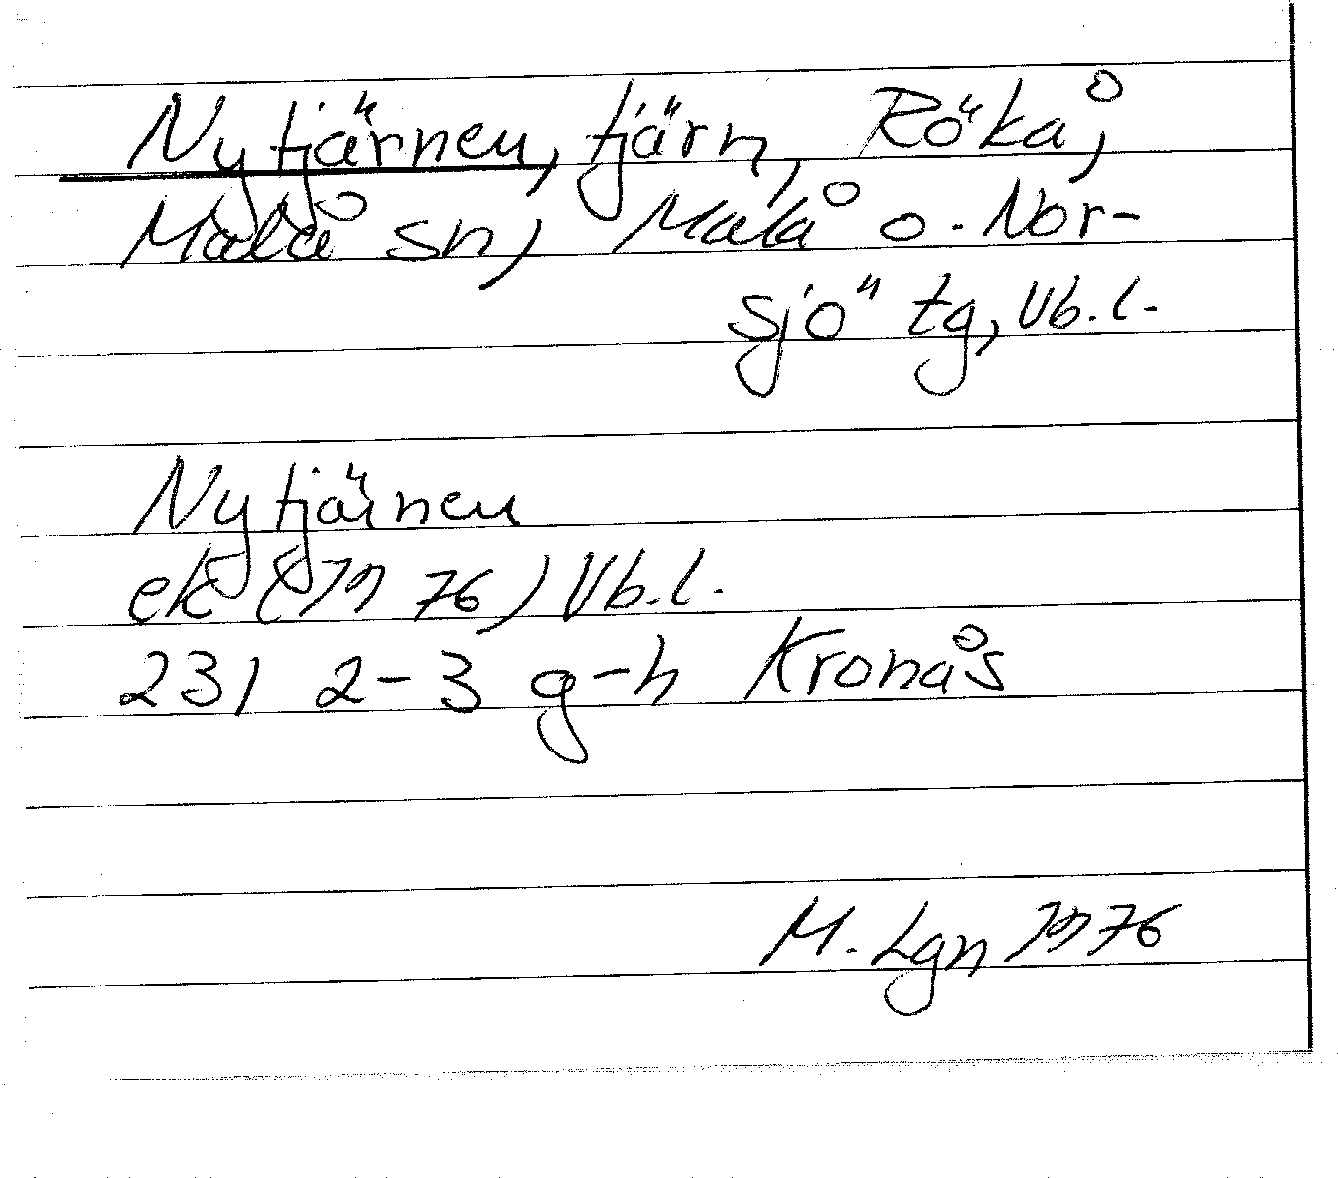 Nytjärnen, tjärn, Rökå,
Malå sn, Malå o. Nor-
sjö tg, Vb. l.
Nytjärnen
ek (1976) Vb. l.
231 2-3 g-h Kronås
M. Lgn 1976